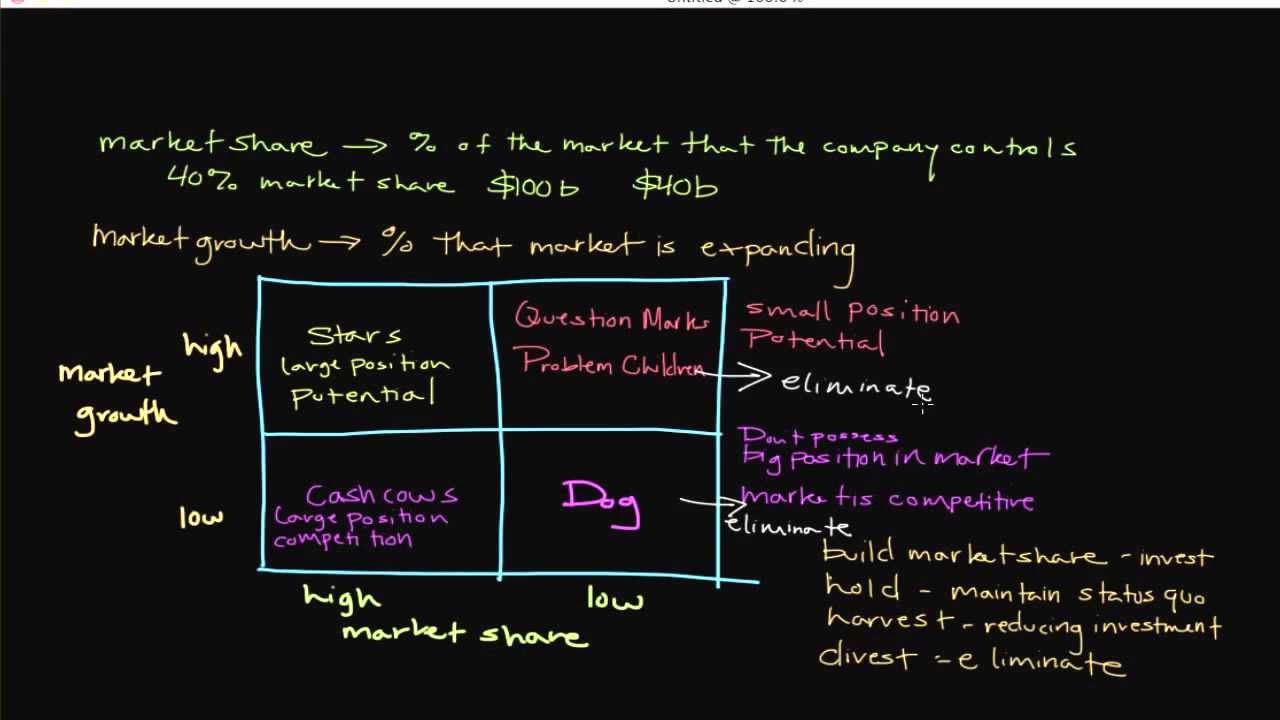 Untitled @ 100.0%
market share → % of the market that the company controls
40% market share $100b $40b
Market growth → % that market is expanding
Stars
large position
potential
Question Marks
Problem Children
small position
Potential
eliminate
high
market
growth
low
Cash cows
Large position
competition
Dog
Don't possess
big position in market
market is competitive
eliminate
high
low
market share
build market share - invest
hold - maintain status quo
harvest - reducing investment
divest - eliminate